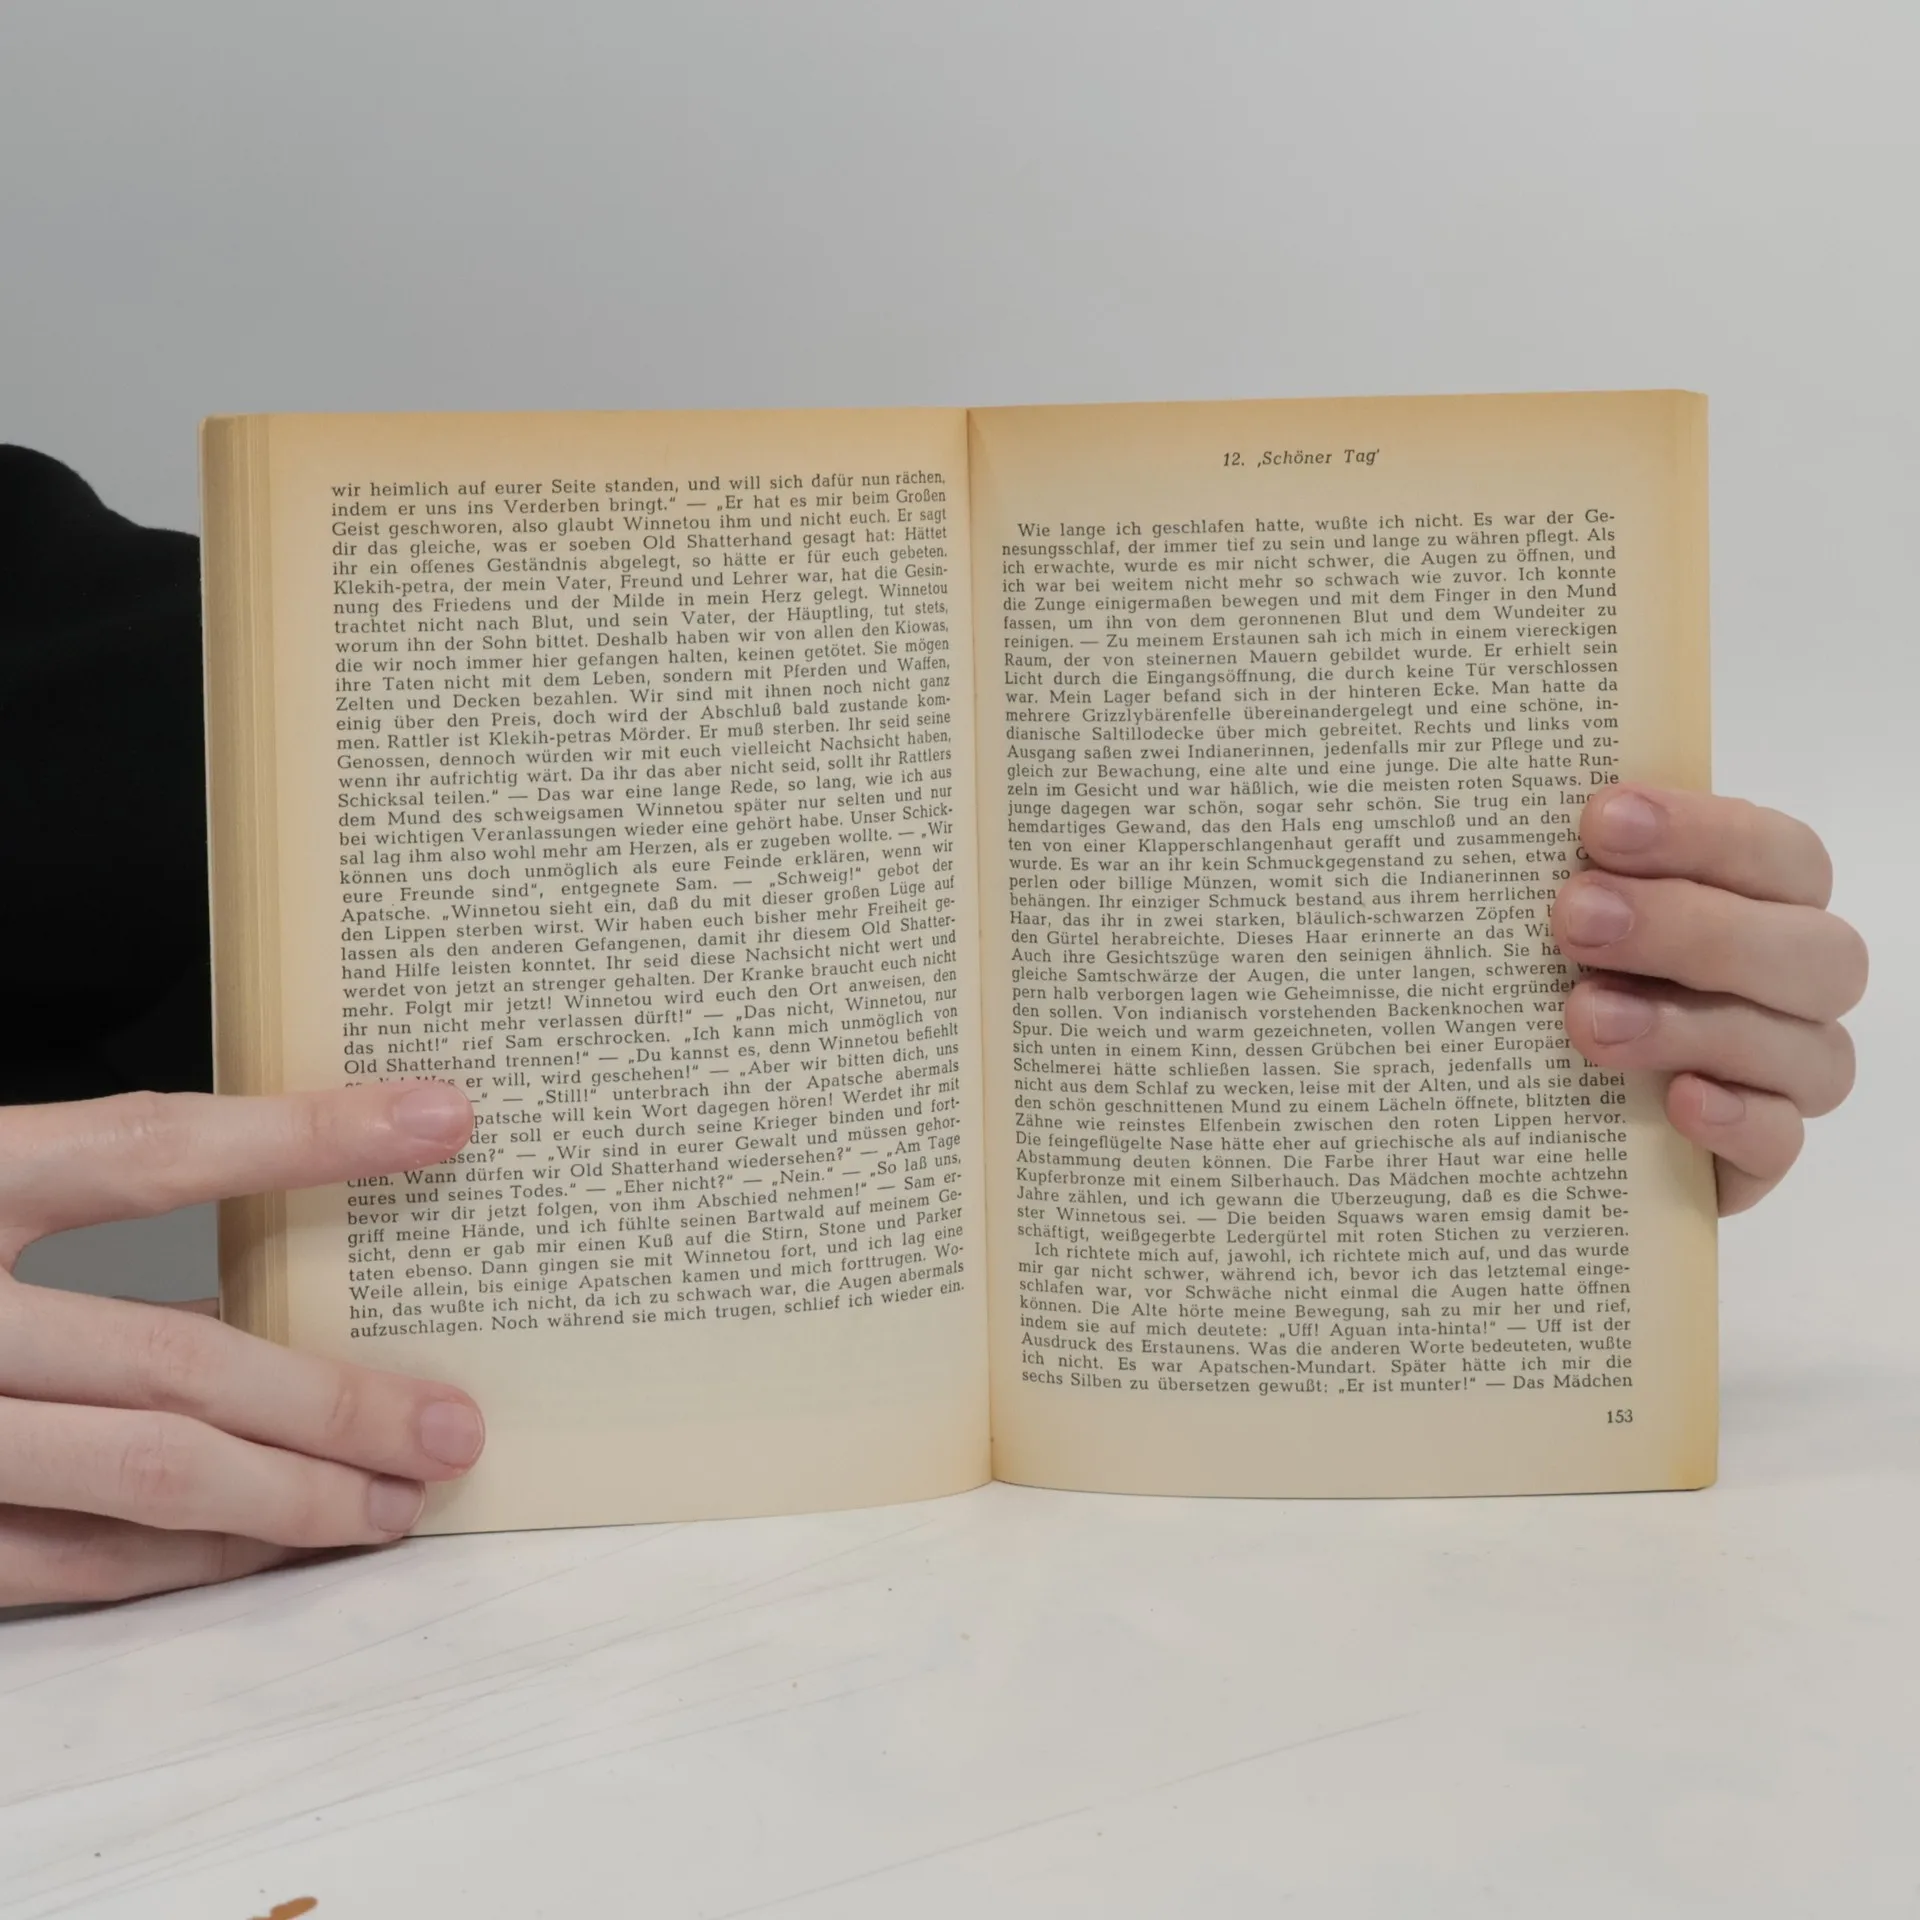 wir heimlich auf eurer Seite standen, und will sich dafür nun rächen,
indem er uns ins Verderben bringt.“ — „Er hat es mir beim Großen
Geist geschworen, also glaubt Winnetou ihm und nicht euch. Er sagt
dir das gleiche, was er soeben Old Shatterhand gesagt hat: Hättet
ihr ein offenes Geständnis abgelegt, so hätte er für euch gebeten.
Klekih-petra, der mein Vater, Freund und Lehrer war, hat die Gesin-
nung des Friedens und der Milde in mein Herz gelegt. Winnetou
trachtet nicht nach Blut, und sein Vater, der Häuptling, tut stets,
worum ihn der Sohn bittet. Deshalb haben wir von allen den Kiowas,
die wir noch immer hier gefangen halten, keinen getötet. Sie mögen
ihre Taten nicht mit dem Leben, sondern mit Pferden und Waffen,
Zelten und Decken bezahlen. Wir sind mit ihnen noch nicht ganz
einig über den Preis, doch wird der Abschluß bald zustande kom-
men. Rattler ist Klekih-petras Mörder. Er muß sterben. Ihr seid seine
Genossen, dennoch würden wir mit euch vielleicht Nachsicht haben,
wenn ihr aufrichtig wärt. Da ihr das aber nicht seid, sollt ihr Rattlers
Schicksal teilen.“ — Das war eine lange Rede, so lang, wie ich aus
dem Mund des schweigsamen Winnetou später nur selten und nur
bei wichtigen Veranlassungen wieder eine gehört habe. Unser Schick-
sal lag ihm also wohl mehr am Herzen, als er zugeben wollte. — „Wir
können uns doch unmöglich als eure Feinde erklären, wenn wir
eure Freunde sind“, entgegnete Sam. — „Schweig!“ gebot der
Apatsche. „Winnetou sieht ein, daß du mit dieser großen Lüge auf
den Lippen sterben wirst. Wir haben euch bisher mehr Freiheit ge-
lassen als den anderen Gefangenen, damit ihr diesem Old Shatter-
hand Hilfe leisten konntet. Ihr seid diese Nachsicht nicht wert und
werdet von jetzt an strenger gehalten. Der Kranke braucht euch nicht
mehr. Folgt mir jetzt! Winnetou wird euch den Ort anweisen, den
ihr nun nicht mehr verlassen dürft!“ — „Das nicht, Winnetou, nur
das nicht!“ rief Sam erschrocken. „Ich kann mich unmöglich von
Old Shatterhand trennen!“ — „Du kannst es, denn Winnetou befiehlt
er will, wird geschehen!“ — „Aber wir bitten dich, uns
—“ — „Still!“ unterbrach ihn der Apatsche abermals
patsche will kein Wort dagegen hören! Werdet ihr mit
der soll er euch durch seine Krieger binden und fort-
ssen?“ — „Wir sind in eurer Gewalt und müssen gehor-
chen. Wann dürfen wir Old Shatterhand wiedersehen?“ — „Am Tage
eures und seines Todes.“ — „Eher nicht?“ — „Nein.“ — „So laß uns,
bevor wir dir jetzt folgen, von ihm Abschied nehmen!“ — Sam er-
griff meine Hände, und ich fühlte seinen Bartwald auf meinem Ge-
sicht, denn er gab mir einen Kuß auf die Stirn, Stone und Parker
taten ebenso. Dann gingen sie mit Winnetou fort, und ich lag eine
Weile allein, bis einige Apatschen kamen und mich forttrugen. Wo-
hin, das wußte ich nicht, da ich zu schwach war, die Augen abermals
aufzuschlagen. Noch während sie mich trugen, schlief ich wieder ein.
12. ‚Schöner Tag‘
Wie lange ich geschlafen hatte, wußte ich nicht. Es war der Ge-
nesungsschlaf, der immer tief zu sein und lange zu währen pflegt. Als
ich erwachte, wurde es mir nicht schwer, die Augen zu öffnen, und
ich war bei weitem nicht mehr so schwach wie zuvor. Ich konnte
die Zunge einigermaßen bewegen und mit dem Finger in den Mund
fassen, um ihn von dem geronnenen Blut und dem Wundeiter zu
reinigen. — Zu meinem Erstaunen sah ich mich in einem viereckigen
Raum, der von steinernen Mauern gebildet wurde. Er erhielt sein
Licht durch die Eingangsöffnung, die durch keine Tür verschlossen
war. Mein Lager befand sich in der hinteren Ecke. Man hatte da
mehrere Grizzlybärenfelle übereinandergelegt und eine schöne, in-
dianische Saltillodecke über mich gebreitet. Rechts und links vom
Ausgang saßen zwei Indianerinnen, jedenfalls mir zur Pflege und zu-
gleich zur Bewachung, eine alte und eine junge. Die alte hatte Run-
zeln im Gesicht und war häßlich, wie die meisten roten Squaws. Die
junge dagegen war schön, sogar sehr schön. Sie trug ein lan
hemdartiges Gewand, das den Hals eng umschloß und an den
ten von einer Klapperschlangenhaut gerafft und zusammengeh
wurde. Es war an ihr kein Schmuckgegenstand zu sehen, etwa G
perlen oder billige Münzen, womit sich die Indianerinnen so
behängen. Ihr einziger Schmuck bestand aus ihrem herrlichen
Haar, das ihr in zwei starken, bläulich-schwarzen Zöpfen
den Gürtel herabreichte. Dieses Haar erinnerte an das Wi
Auch ihre Gesichtszüge waren den seinigen ähnlich. Sie ha
gleiche Samtschwärze der Augen, die unter langen, schweren
pern halb verborgen lagen wie Geheimnisse, die nicht ergründet
den sollen. Von indianisch vorstehenden Backenknochen war
Spur. Die weich und warm gezeichneten, vollen Wangen vere
sich unten in einem Kinn, dessen Grübchen bei einer Europäer
Schelmerei hätte schließen lassen. Sie sprach, jedenfalls um
nicht aus dem Schlaf zu wecken, leise mit der Alten, und als sie dabei
den schön geschnittenen Mund zu einem Lächeln öffnete, blitzten die
Zähne wie reinstes Elfenbein zwischen den roten Lippen hervor.
Die feingeflügelte Nase hätte eher auf griechische als auf indianische
Abstammung deuten können. Die Farbe ihrer Haut war eine helle
Kupferbronze mit einem Silberhauch. Das Mädchen mochte achtzehn
Jahre zählen, und ich gewann die Überzeugung, daß es die Schwe-
ster Winnetous sei. — Die beiden Squaws waren emsig damit be-
schäftigt, weißgegerbte Ledergürtel mit roten Stichen zu verzieren.
Ich richtete mich auf, jawohl, ich richtete mich auf, und das wurde
mir gar nicht schwer, während ich, bevor ich das letztemal einge-
schlafen war, vor Schwäche nicht einmal die Augen hatte öffnen
können. Die Alte hörte meine Bewegung, sah zu mir her und rief,
indem sie auf mich deutete: „Uff! Aguan inta-hinta!“ — Uff ist der
Ausdruck des Erstaunens. Was die anderen Worte bedeuteten, wußte
ich nicht. Es war Apatschen-Mundart. Später hätte ich mir die
sechs Silben zu übersetzen gewußt: „Er ist munter!“ — Das Mädchen
153